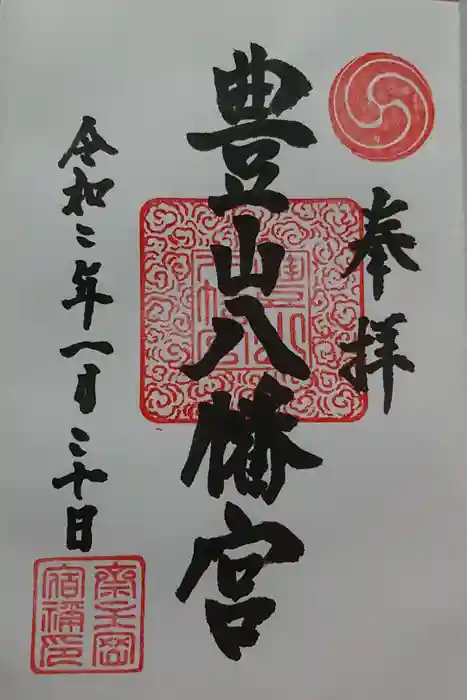 奉拝
豊山八幡宮
令和二年一月二十日